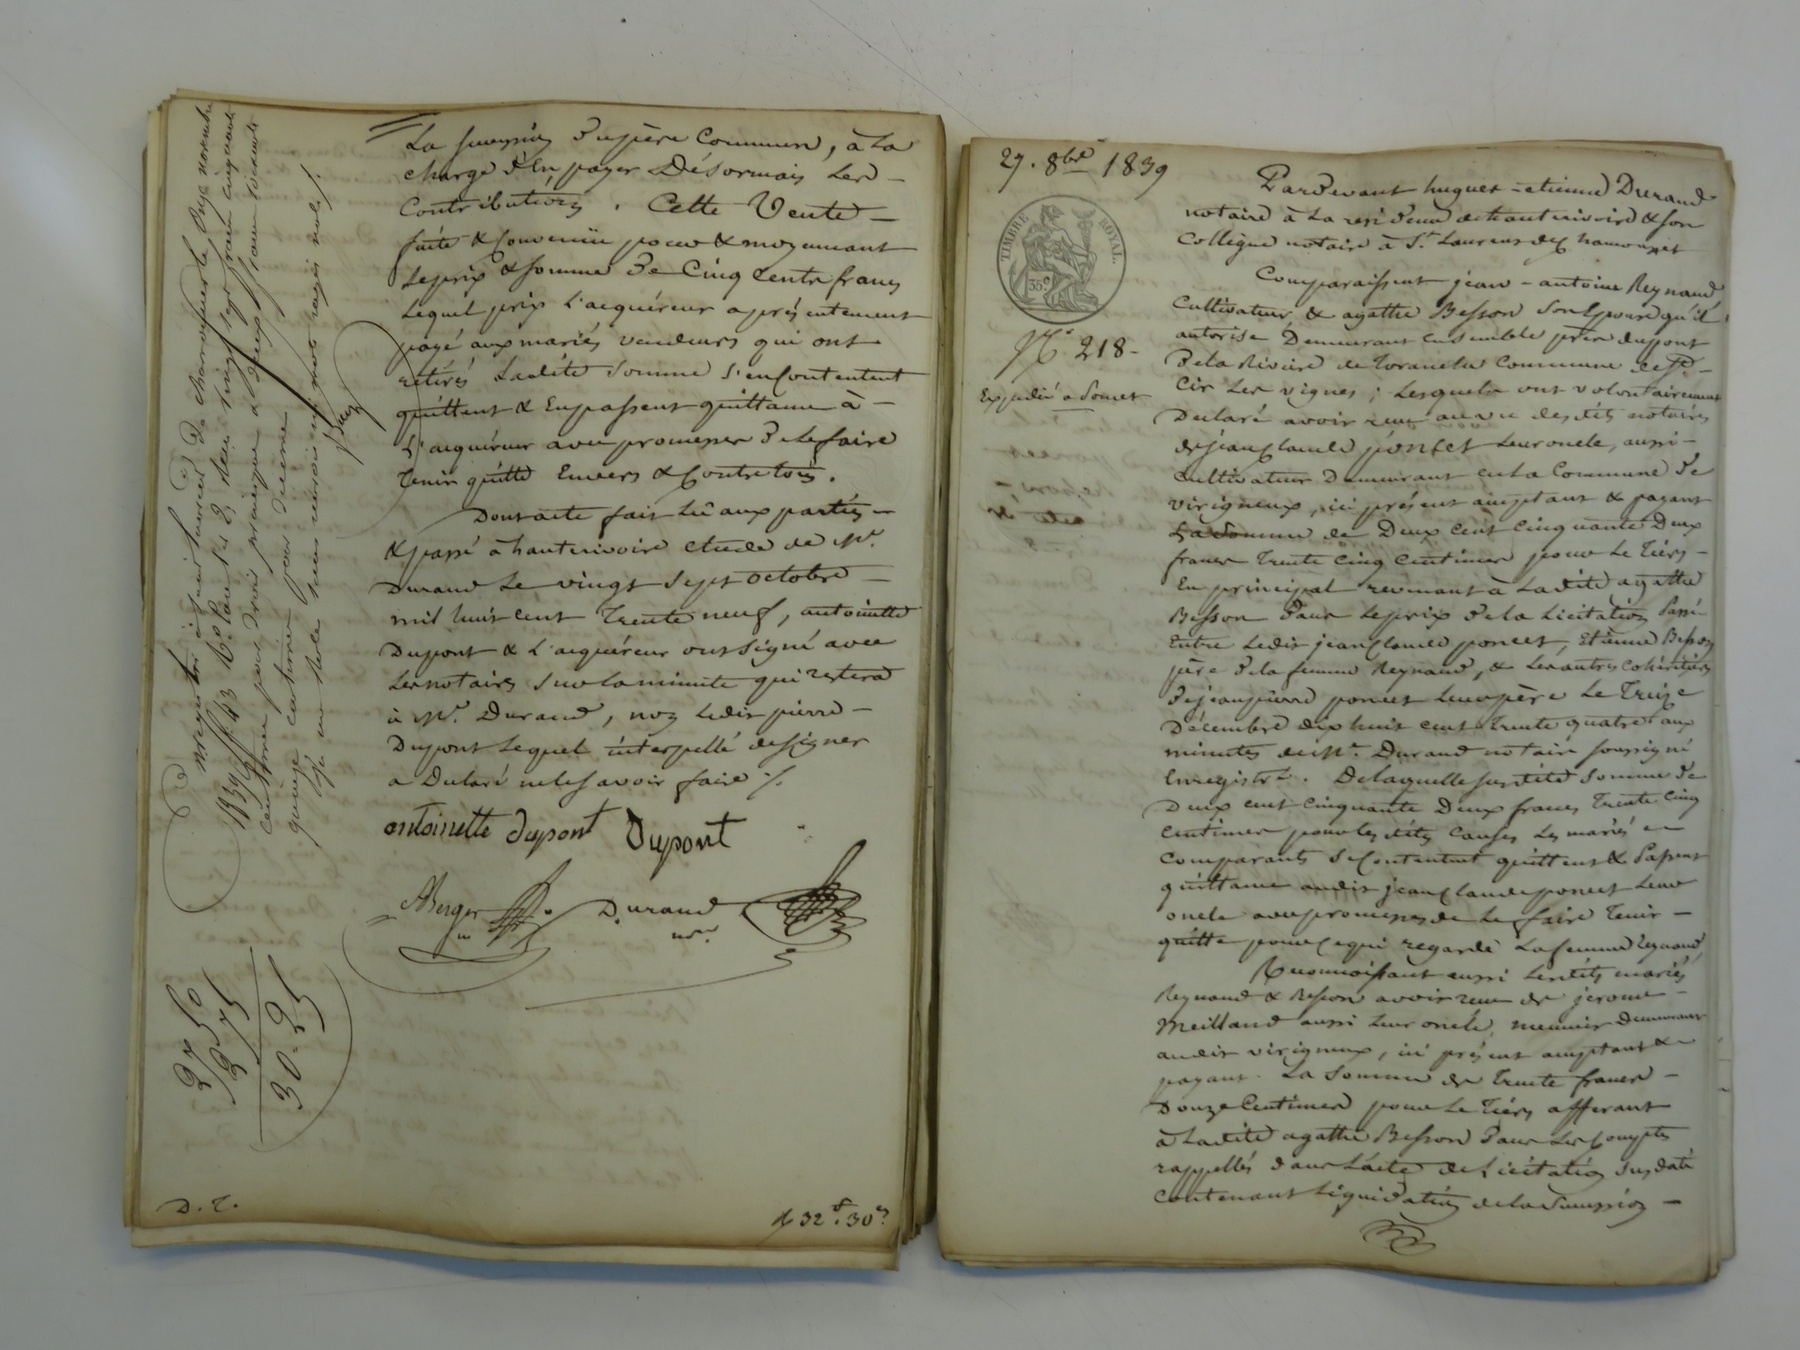 La succession du père commun, à la
charge d'en payer Désormais Les
Contributions. Cette Vente
faite & convenüe pour & moyennant
Le prix & somme de Cinq Cents francs
Lequel prix L'acquéreur a présentement
payé aux mariés vendeurs qui ont
retirés Ladite somme s'en Contentent
quittent & En passent quittance à
L'acquéreur avec promesse de le faire
Tenir quitte Envers & Contre tous.
Dont acte fait Lû aux parties
& passé à hauterivoire étude de Me.
Durand Le vingt sept octobre
mil huit cent Trente neuf, antoinette
Dupont & L'acquéreur ont signé avec
Les notaires sur la minute qui restera
à Me. Durand, non Ledit pierre
Dupont Lequel interpellé de signer
a Déclaré ne le savoir faire /.
antoinette dupont Dupont
Berger
Durand
nre
D. T.
32f. 30c
Enregistré à
1839 fo. 43
27 50
2 75
30 - 25
27. 8bre 1839
TIMBRE ROYAL.
35c
No. 218 -
Expédié à Poncet
Pardevant hugues-etienne Durand
notaire à La residence de hauterivoire & son
Collègue notaire à St. Laurent de chamousset
Comparaissent jean-antoine Reynaud
Cultivateur & agathe Besson son Epouse qu'il
autorise Demeurant ensemble près du pont
De la Rivière de Toranche Commune de St.
Cir Les vignes; Lesquels ont volontairement
Declaré avoir reçu au vu desdits notaires
de jean Claude poncet Leur oncle, aussi
Cultivateur Demeurant en La Commune de
virigneux, ici présent acceptant & payant
La Somme de Deux Cent Cinquante Deux
francs Trente Cinq Centimes pour Le Tiers
En principal revenant à Ladite agathe
Besson Dans Le prix de la Licitation Passée
Entre Ledit jean Claude poncet, Etienne Besson
père de la femme Reynaud, & Les autres Cohéritiers
de jean pierre poncet Leur père Le Treize
Décembre dix huit cent Trente quatre aux
minutes de Me. Durand notaire soussigné
Enregistré. De laquelle susdite somme de
Deux cent Cinquante Deux francs Trente Cinq
Centimes pour les dites Causes Les mariés
Comparants se Contentent quittent & Passent
quittance audit jean Claude poncet Leur
oncle avec promesse de Le faire Tenir
quitte pour Ce qui regarde La femme Reynaud
Reconnoissant aussi Lesdits mariés
Reynaud & Besson avoir reçu de jerome
Meilland aussi Leur oncle, meunier demeurant
audit virigneux, ici présent acceptant &
payant La Somme de Trente francs
Douze Centimes pour Le Tiers afferant
à Ladite agathe Besson Dans Les Comptes
rappellés dans L'acte de Licitation susdaté
Contenant Liquidation de la Succession